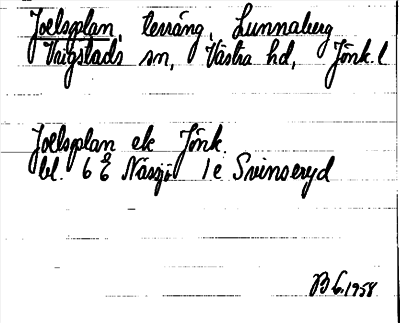 Joelsplan, terräng, Lunnaberg
Vrigstads sn, Västra hd, Jönk. l
Joelsplan ek Jönk.
bl. 6 E Nässjö 1 e Svinseryd
B G. 1958